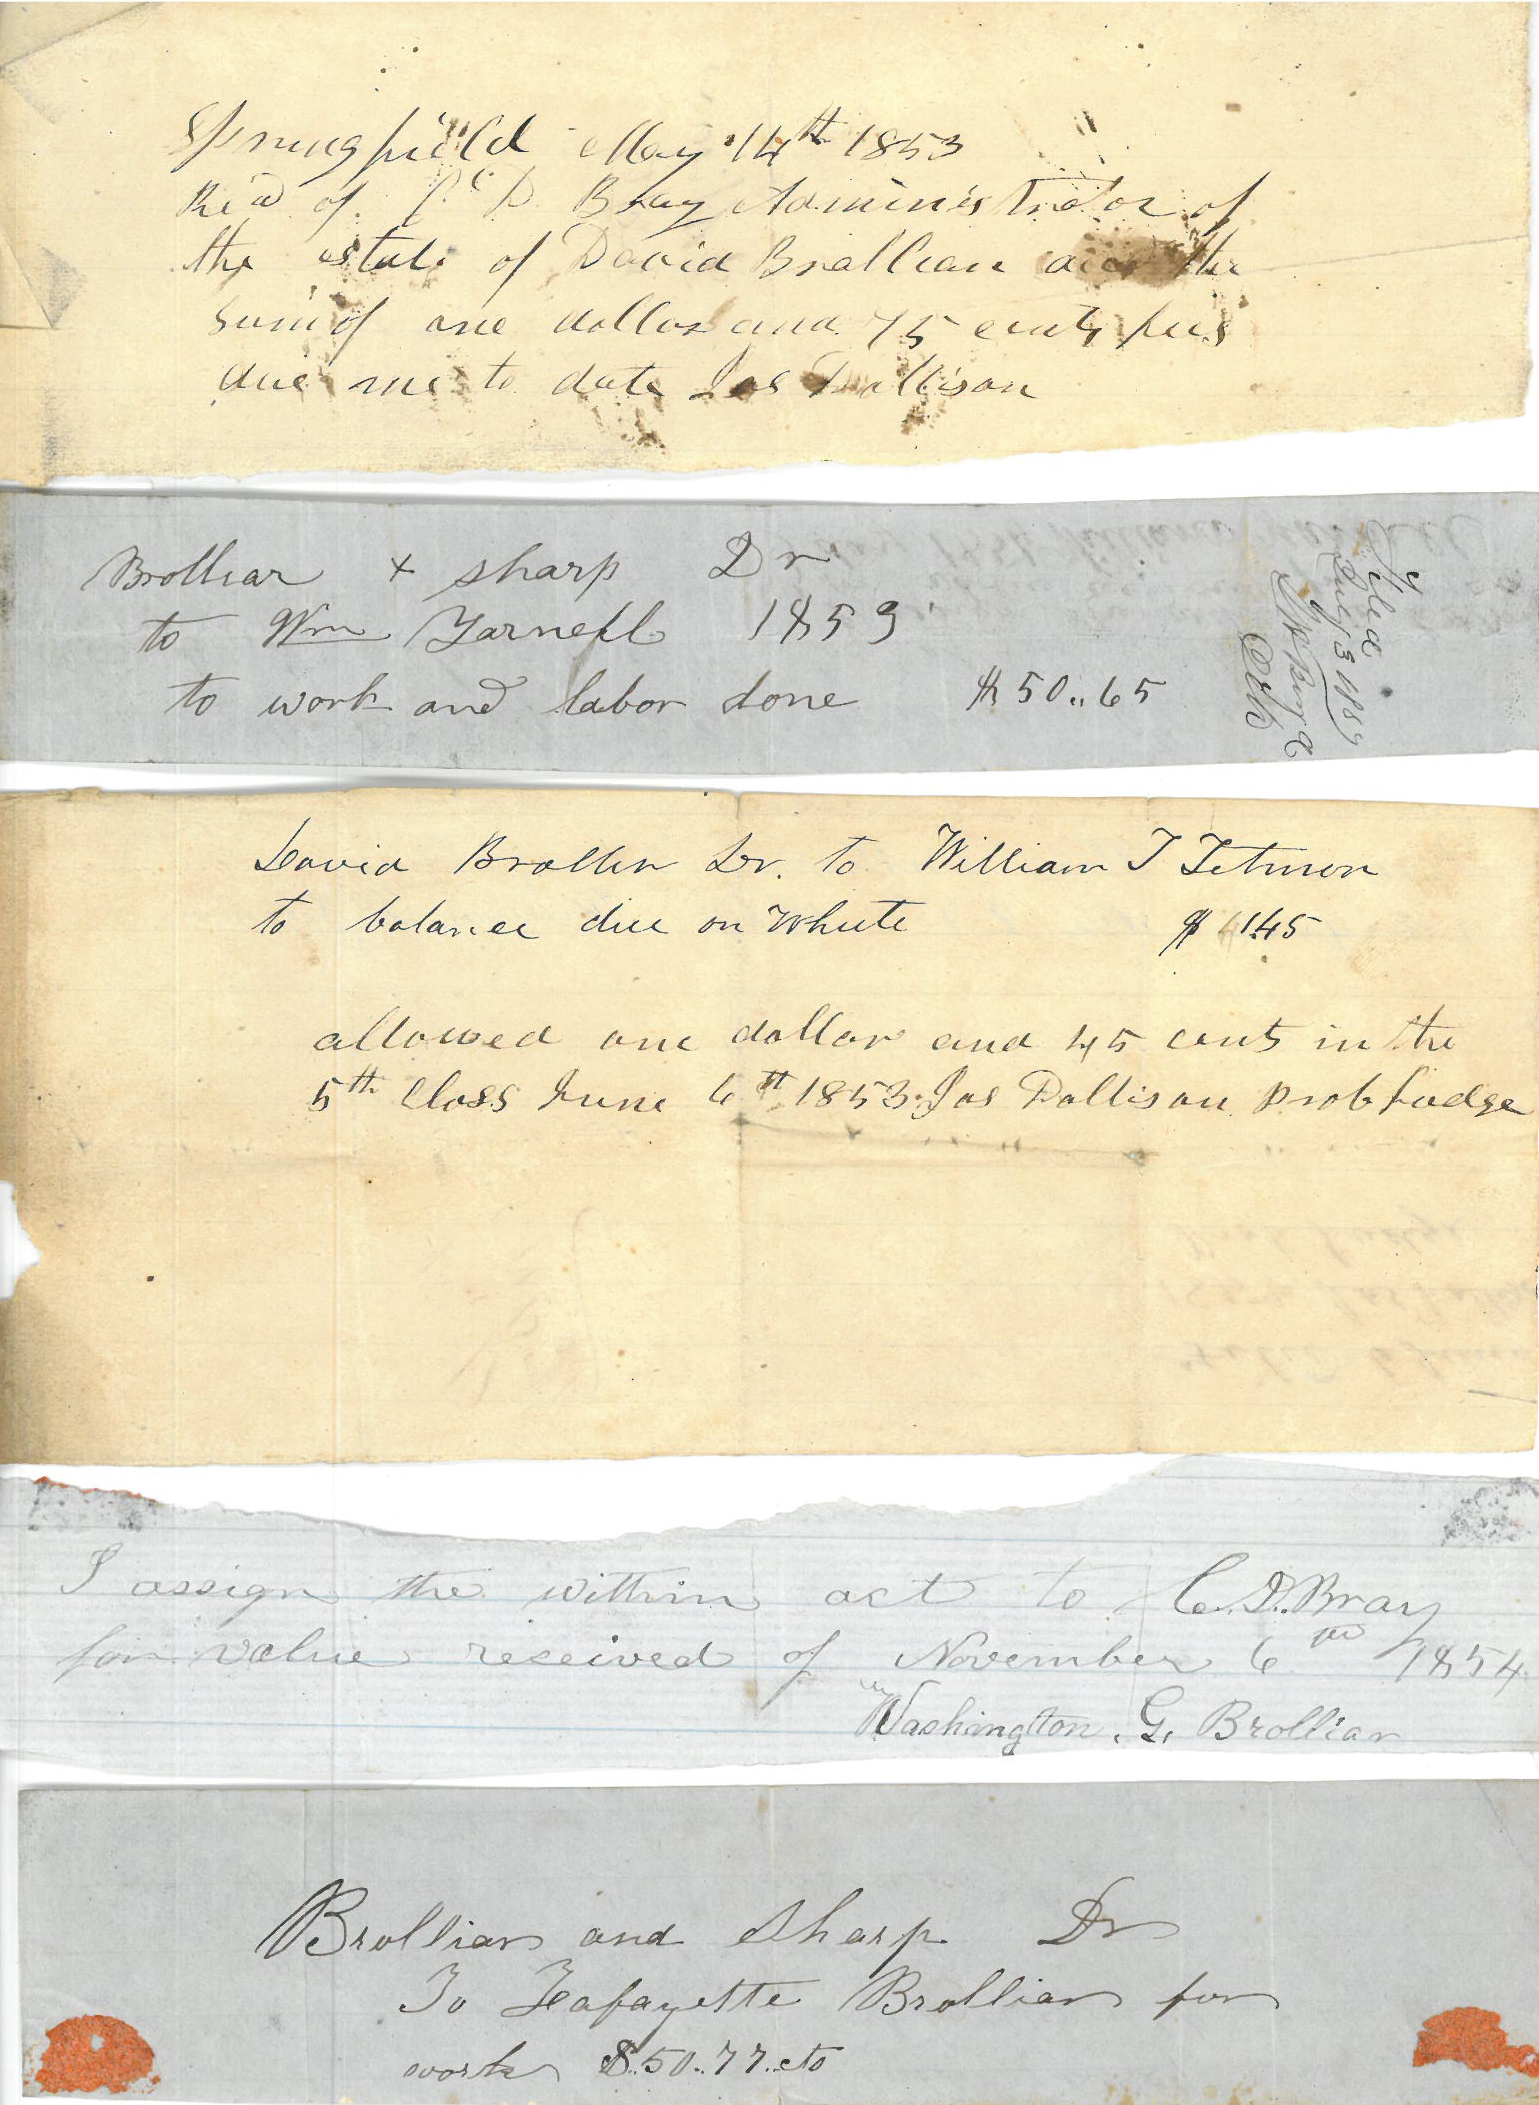 Springfield May 14th 1853
Rec'd of C D Bray Administrator of
the estate of David Brallian the
sum of one dollar and 75 cents fees
due me to date Jos Dollison
Brolliar + Sharp Dr
to Wm Yarnell 1853
to work and labor done $50..65
Filed
July 3
David Brolier Dr. to William T Tetmon
to balance due on Whute $ 1.45
allowed one dollar and 45 cents in the
5th Class June 6th 1853. Jos Dollison prob Judge
I assign the within act to C. D. Bray
for value received of November 6th 1854
Washington. G. Brolliar
Brolliar and Sharp Dr
To Lafayette Brolliar for
work $.50..77.cts